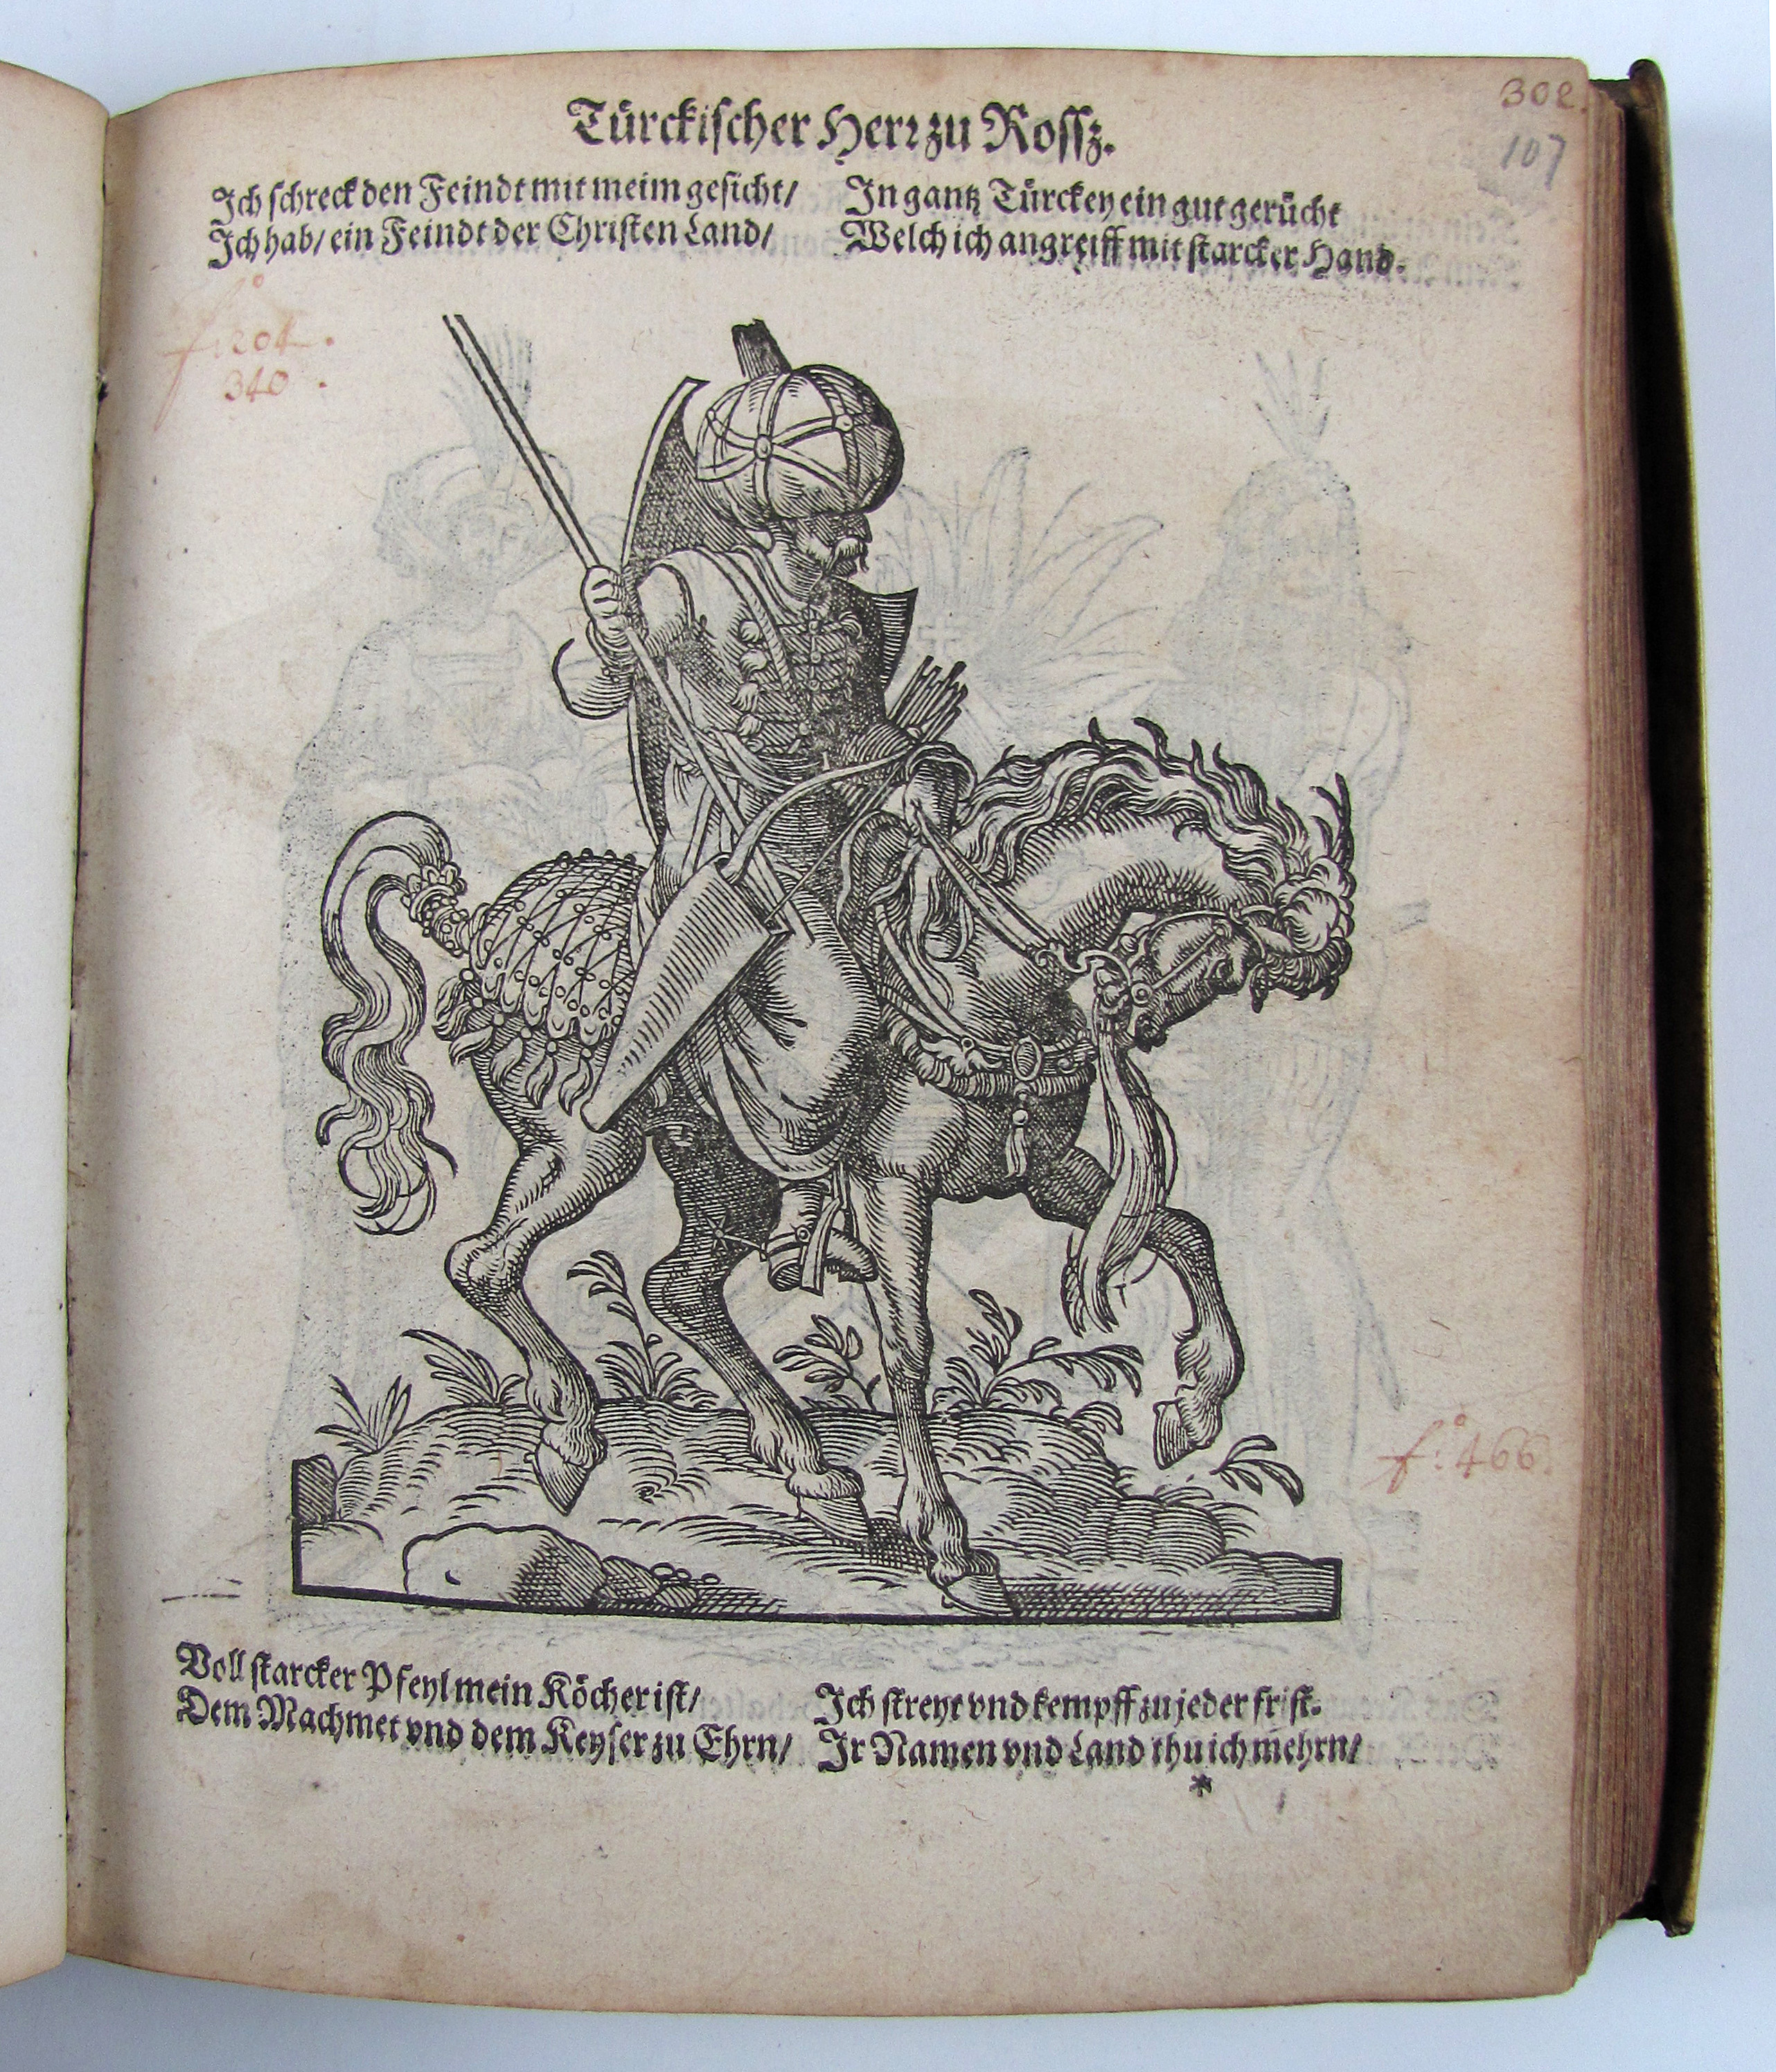 302.
107
Türckischer Herr zu Rossz.
Ich schreck den Feindt mit meim gesicht/
Ich hab/ ein Feindt der Christen Land/
In gantz Türckey ein gut gerücht
Welch ich angreiff mit starcker Hand.
f:o 204.
340.
f:o 466.
Voll starcker Pfeyl mein Köcher ist/
Dem Machmet vnd dem Keyser zu Ehrn/
Ich streyt vnd kempff zu jeder frist.
Ir Namen vnd Land thu ich mehrn/
*